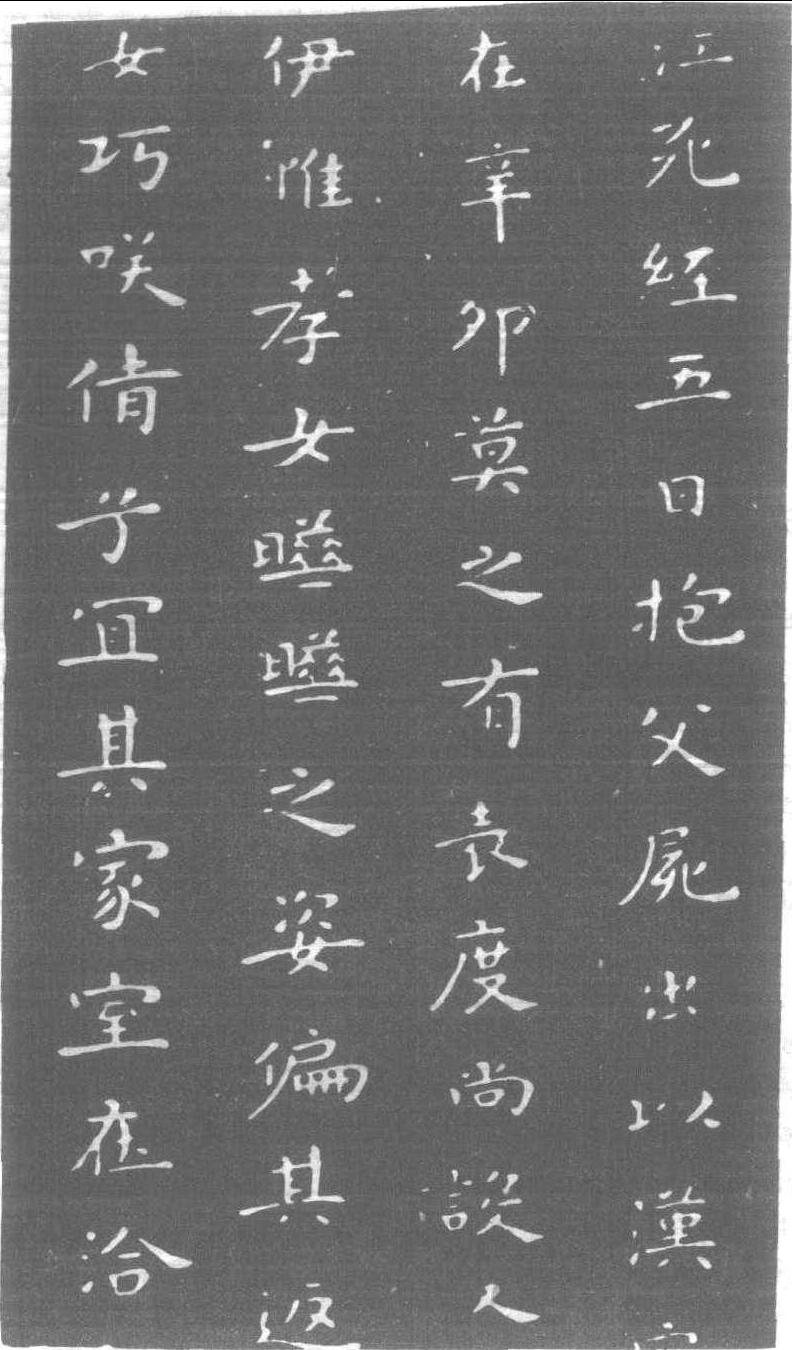 江死經五日抱父屍出以漢
在辛卯莫之有表度尚設人
伊惟孝女曄曄之姿偏其返
女巧咲倩兮冝其家室在洽